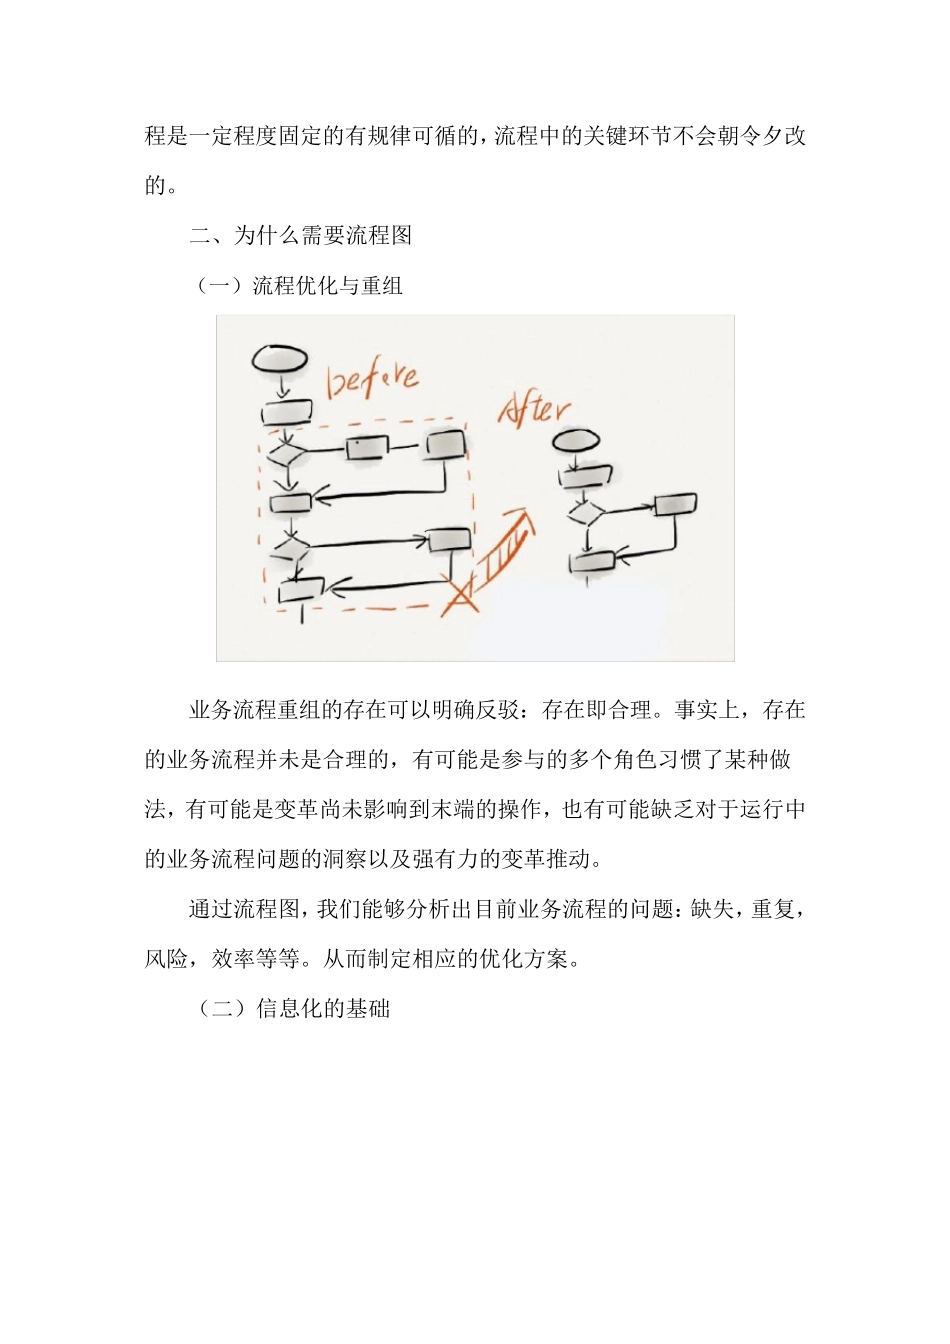 程是一定程度固定的有规律可循的，流程中的关键环节不会朝令夕改
的。
二、为什么需要流程图
（一）流程优化与重组
before
After
业务流程重组的存在可以明确反驳：存在即合理。事实上，存在
的业务流程并未是合理的，有可能是参与的多个角色习惯了某种做
法，有可能是变革尚未影响到末端的操作，也有可能缺乏对于运行中
的业务流程问题的洞察以及强有力的变革推动。
通过流程图，我们能够分析出目前业务流程的问题：缺失，重复，
风险，效率等等。从而制定相应的优化方案。
（二）信息化的基础